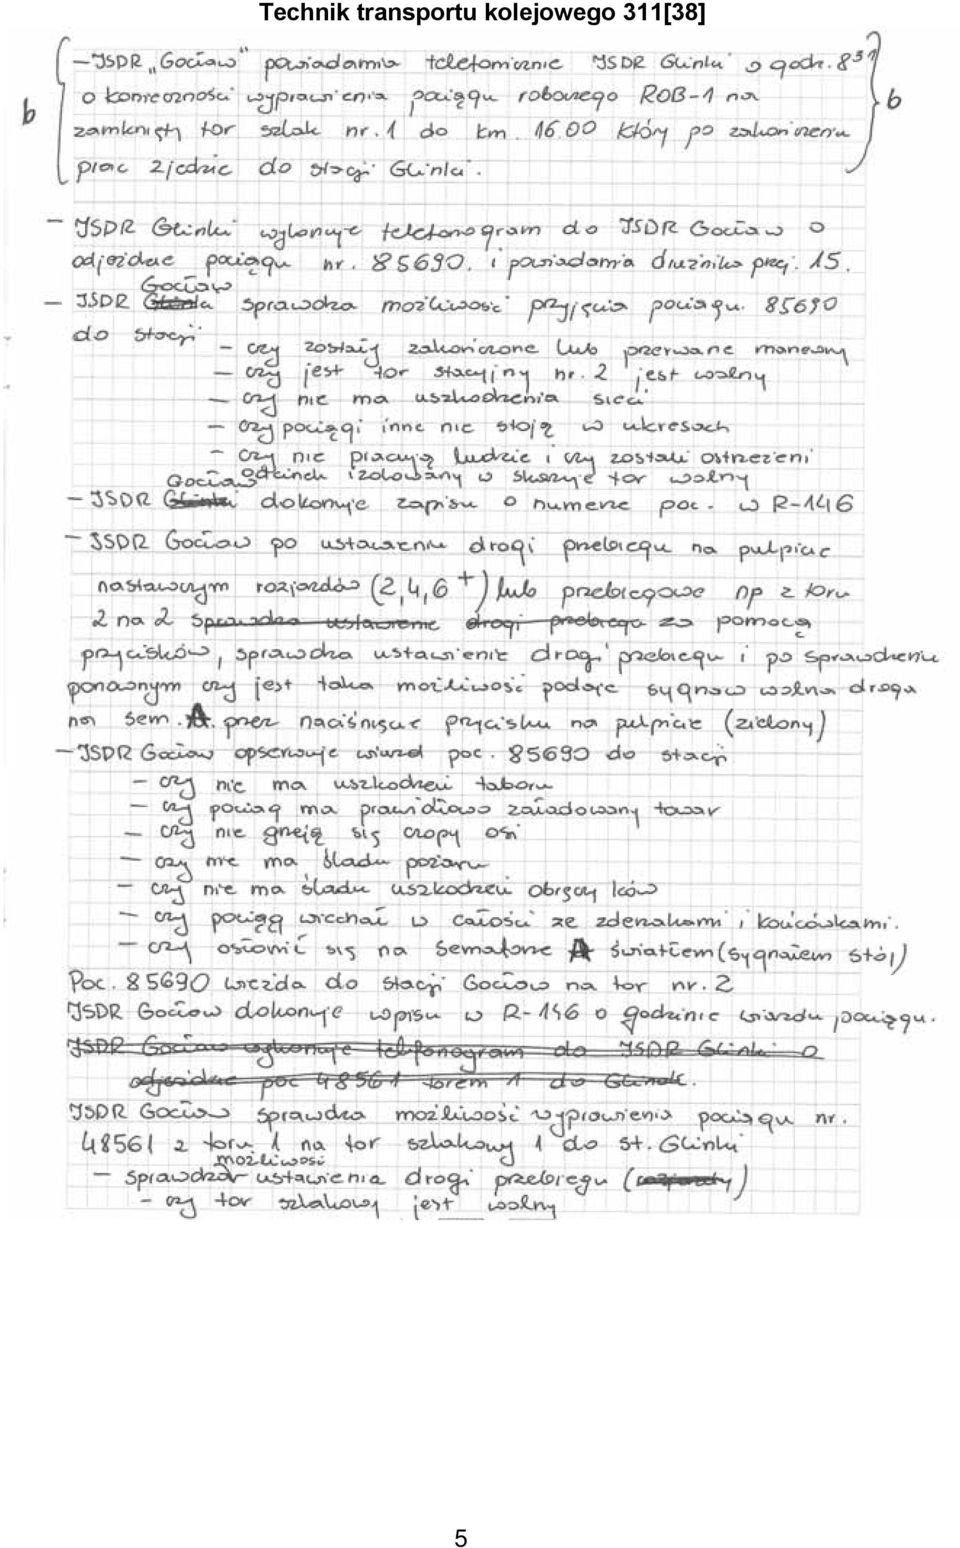 Technik transportu kolejowego 311[38]
b – ISDR „Gocław" powiadamia telefonicznie ISDR Glinki o godz. 8³¹ b
o konieczności wyprawienia pociągu roboczego ROB-1 na
zamknięty tor szlak nr. 1 do km. 16.00 który po zakończeniu
prac zjedzie do stacji Glinki.
– ISDR Glinki wykonuje telefonogram do ISDR Gocław o
odjeździe pociągu nr. 85690. i powiadamia drużnika przej. 15.
Gocław
– ISDR Glinki sprawdza możliwość przyjęcia pociągu. 85690
do stacji
– czy zostały zakończone lub przerwane manewry
– czy jest tor stacyjny nr. 2 jest wolny
– czy nie ma uszkodzenia sieci
– czy pociągi inne nie stoją w ukresach
– czy nie pracują ludzie i czy zostali ostrzeżeni
odcinek izolowany w skazuje tor wolny
Gocław
– ISDR Glinki dokonuje zapisu o numerze poc. w R-146
– ISDR Gocław po ustawieniu drogi przebiegu na pulpicie
nastawczym rozjazdów (2,4,6 +) lub przebiegowe np z toru
2 na 2 sprawdza ustawienie drogi przebiegu za pomocą
przycisków, sprawdza ustawienie drogi przebiegu i po sprawdzeniu
ponownym czy jest taka możliwość podaje sygnał wolna droga
na sem. A. przez naciśnięcie przycisku na pulpicie (zielony)
– ISDR Gocław opserwuje wjazd poc. 85690 do stacji
– czy nie ma uszkodzeń taboru
– czy pociąg ma prawidłowo załadowany towar
– czy nie grzeją się czopy osi
– czy nie ma śladu pożaru
– czy nie ma śladu uszkodzeń obręczy kół
– czy pociąg wjechał w całości ze zderzakami i końcówkami.
– czy osłonił się na semaforze A światłem (sygnałem stój)
Poc. 85690 wjeżdża do stacji Gocław na tor nr. 2
ISDR Gocław dokonuje wpisu w R-146 o godzinie wjazdu pociągu.
ISDR Gocław wykonuje telefonogram do ISDR Glinki o
odjeździe poc 48561 torem 1 do Glinek.
ISDR Gocław sprawdza możliwość wyprawienia pociągu nr.
48561 z toru 1 na tor szlakowy 1 do st. Glinki
możliwość
– sprawdza ustawienia drogi przebiegu (rozjazdy)
– czy tor szlakowy jest wolny
5